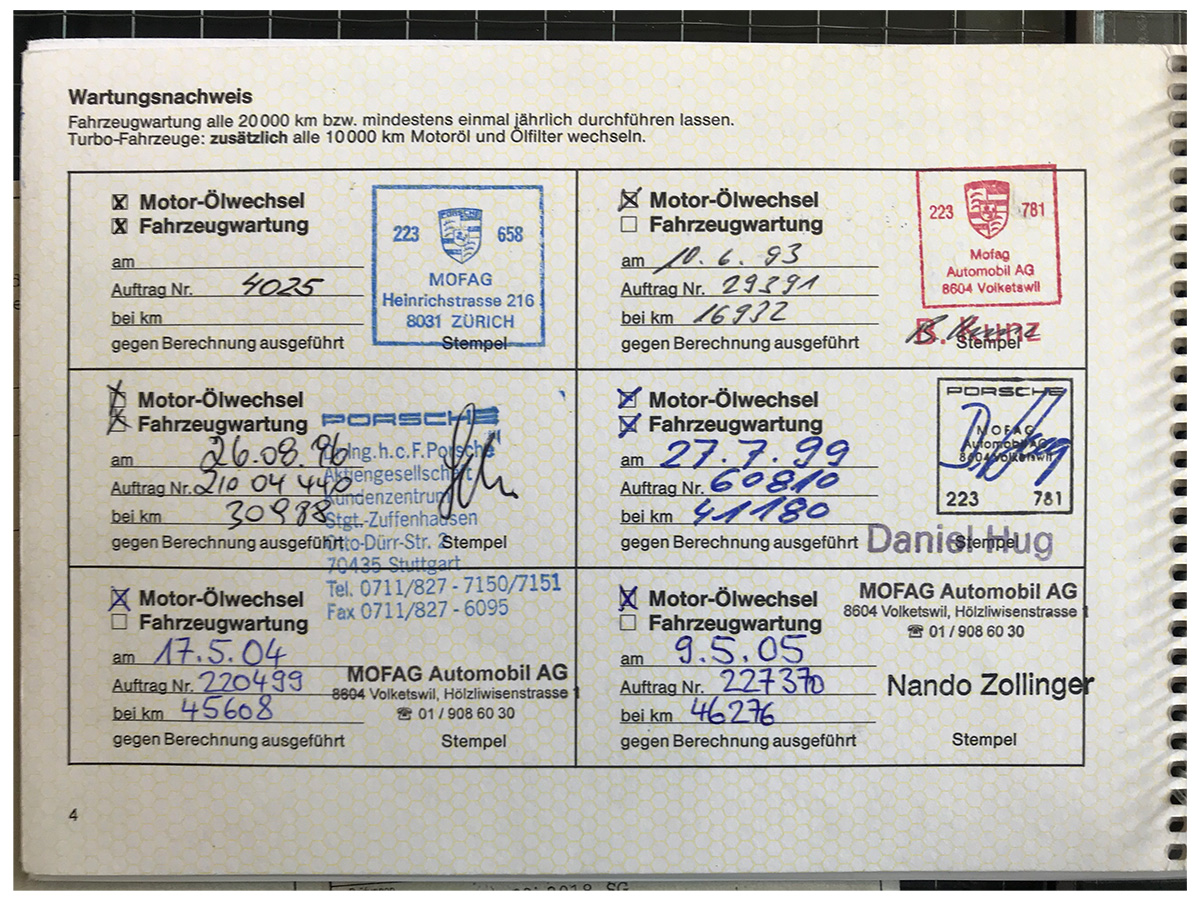 Wartungsnachweis
Fahrzeugwartung alle 20 000 km bzw. mindestens einmal jährlich durchführen lassen.
Turbo-Fahrzeuge: zusätzlich alle 10 000 km Motoröl und Ölfilter wechseln.
x Motor-Ölwechsel
x Fahrzeugwartung
am
Auftrag Nr. 4025
bei km
gegen Berechnung ausgeführt
Stempel
PORSCHE
223 658
MOFAG
Heinrichstrasse 216
8031 ZÜRICH
x Motor-Ölwechsel
Fahrzeugwartung
am 10. 6. 93
Auftrag Nr. 29391
bei km 16932
gegen Berechnung ausgeführt
Stempel
223 781
Mofag
Automobil AG
8604 Volketswil
B. Kunz
x Motor-Ölwechsel
x Fahrzeugwartung
am 26.08.96
Auftrag Nr. 210 04 440
bei km 30988
gegen Berechnung ausgeführt
Stempel
PORSCHE
Dr.Ing. h.c. F. Porsche
Aktiengesellschaft
Kundenzentrum
Stgt.-Zuffenhausen
Otto-Dürr-Str. 2
70435 Stuttgart
Tel. 0711/827 - 7150/7151
Fax 0711/827 - 6095
x Motor-Ölwechsel
x Fahrzeugwartung
am 27.7.99
Auftrag Nr. 60810
bei km 41180
gegen Berechnung ausgeführt
Stempel
PORSCHE
MOFAG
Automobil AG
8604 Volketswil
223 781
Daniel Hug
x Motor-Ölwechsel
Fahrzeugwartung
am 17.5.04
Auftrag Nr. 220499
bei km 45608
gegen Berechnung ausgeführt
Stempel
MOFAG Automobil AG
8604 Volketswil, Hölzliwisenstrasse 1
☎ 01 / 908 60 30
x Motor-Ölwechsel
Fahrzeugwartung
am 9.5.05
Auftrag Nr. 227370
bei km 46276
gegen Berechnung ausgeführt
Stempel
MOFAG Automobil AG
8604 Volketswil, Hölzliwisenstrasse 1
☎ 01 / 908 60 30
Nando Zollinger
4